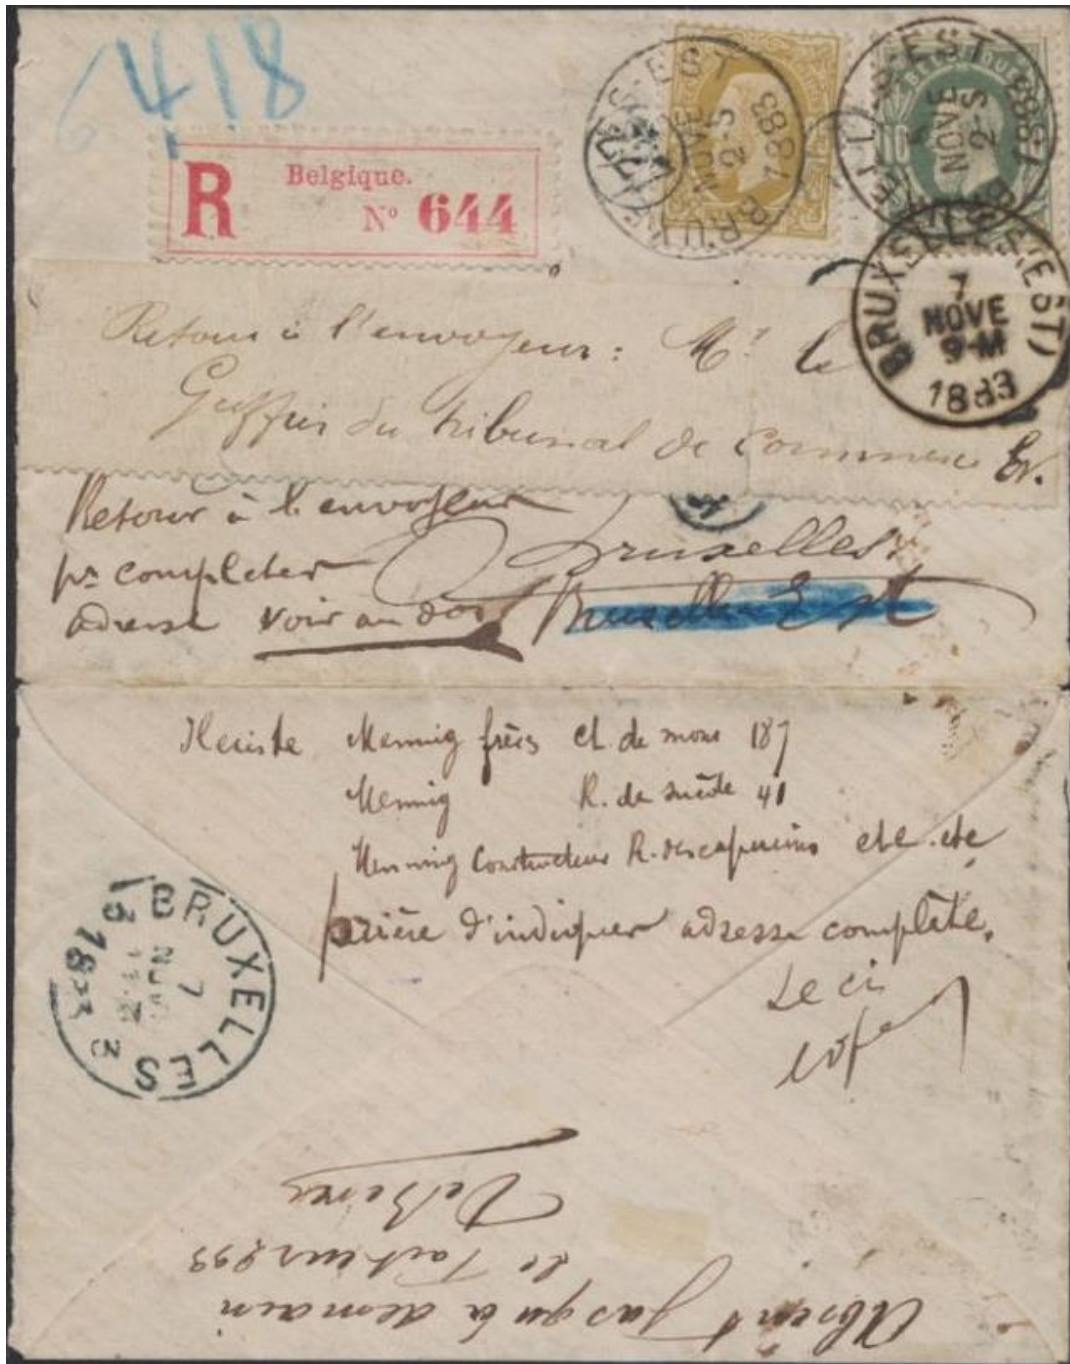 418
R Belgique.
N° 644
BRUXELLES-EST
NOVE
2-S
1883
BELGIQUE
10
BRUXELLES-EST
NOVE
2-S
1883
BRUXELLES (EST)
7
NOVE
9-M
1883
Retour à l'envoyeur : Mr le
Greffier du tribunal de commerce Ev.
Retour à l'envoyeur
pr completer
Bruxelles
adresse voir au dos
Bruxelles Est
Il existe Mennig frères ch. de mons 187
Mennig R. de suède 41
Mennig Constructeur R. des capucins etc. etc
prière d'indiquer adresse complète.
BRUXELLES
7
NOV
3
1883
Absent jusqu'à demain
le facteur 299